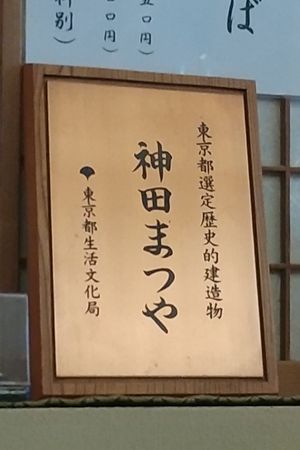 ば
五〇円)
〇〇円)
料別)
東京都選定歴史的建造物
神田まつや
東京都生活文化局